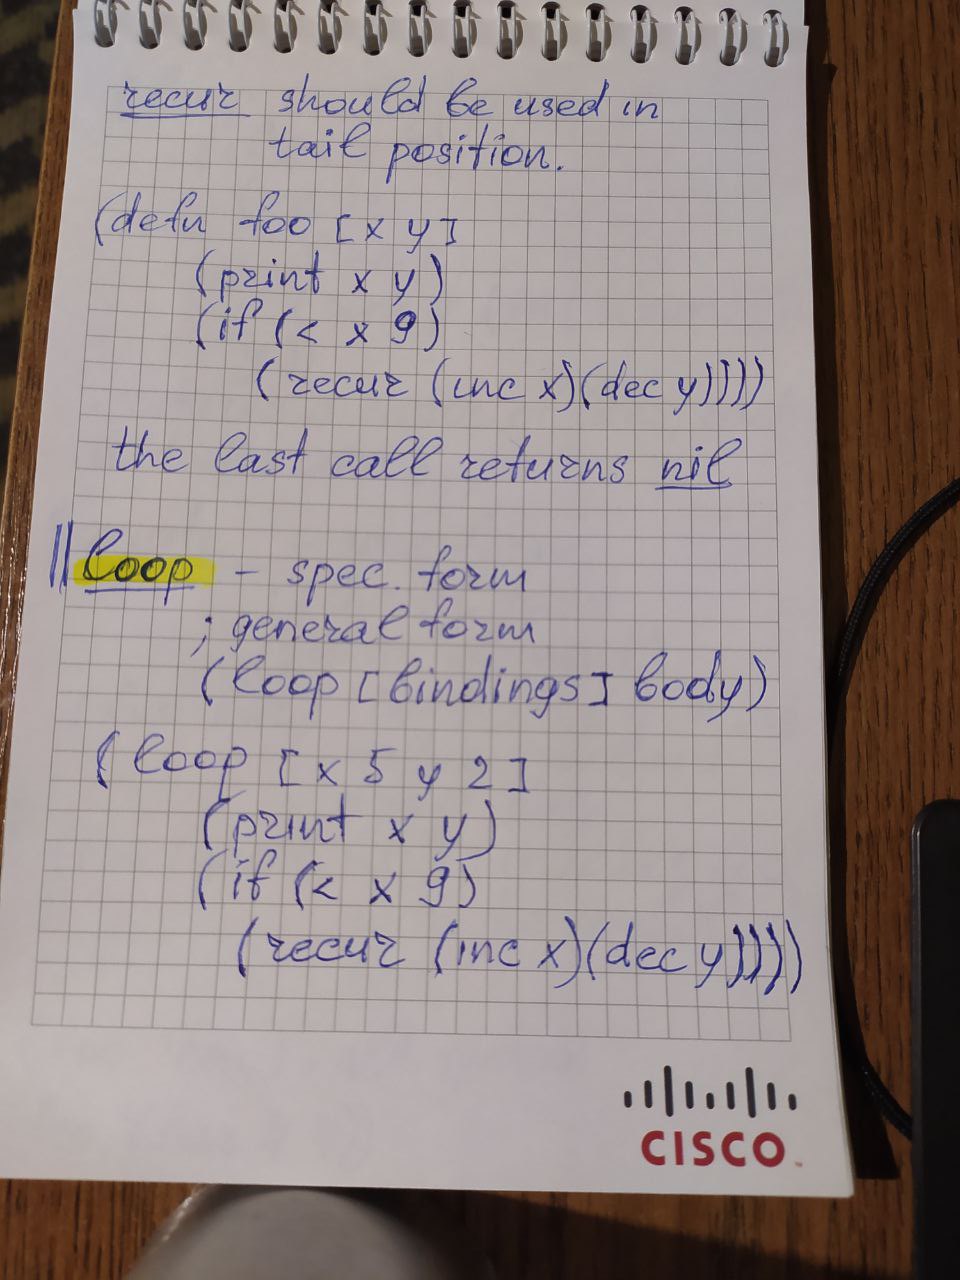 recur should be used in
tail position.
(defn foo [x y]
(print x y)
(if (< x 9)
(recur (inc x)(dec y))))
the last call returns nil
loop - spec. form
; general form
(loop [bindings] body)
(loop [x 5 y 2]
(print x y)
(if (< x 9)
(recur (inc x)(dec y))))
CISCO